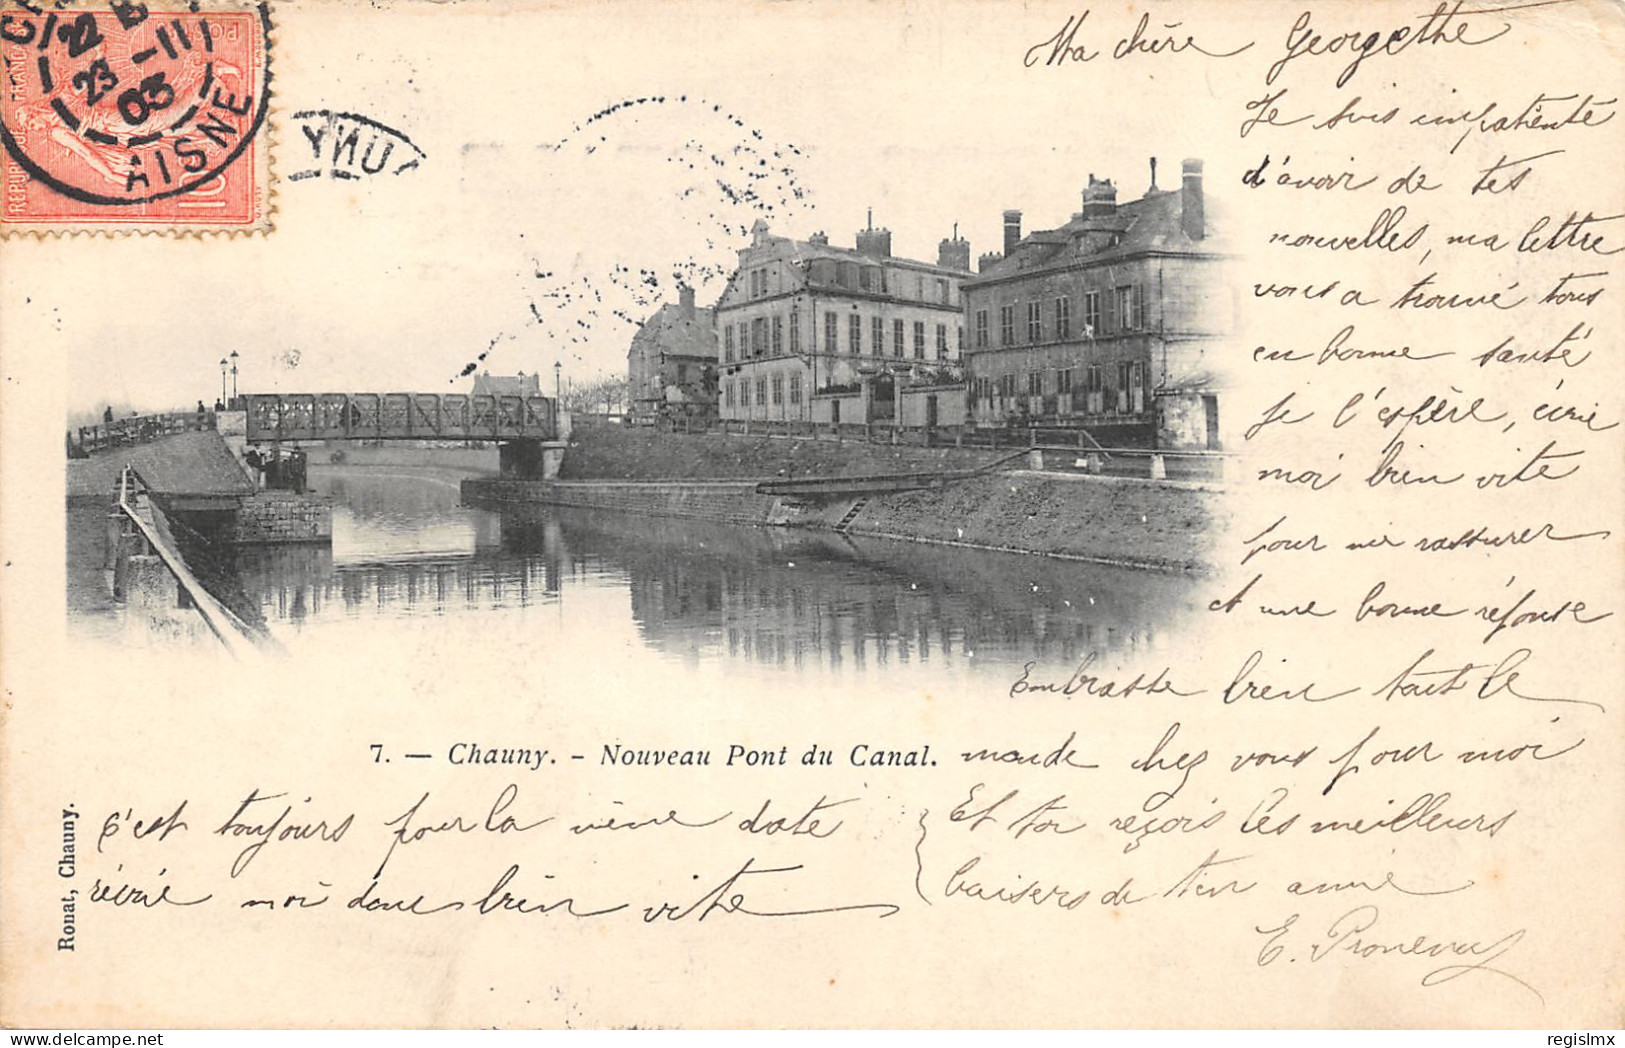 Ma chère Georgethe
Je suis impatiente
d'avoir de tes
nouvelles, ma lettre
vous a trouvé tous
en bonne santé
je l'espère, écrie
moi bien vite
pour me rassurer
et une bonne réponse
Embrasse bien tout le
monde chez vous pour moi
Et toi reçois les meilleurs
baisers de ton amie
E.
7. — Chauny. - Nouveau Pont du Canal.
c'est toujours pour la même date
récrie moi donc bien vite
Ronat, Chauny.
REPUBLIQUE FRANCAISE
POSTES
10
22
23 -11
03
AISNE
UNY
regislmx